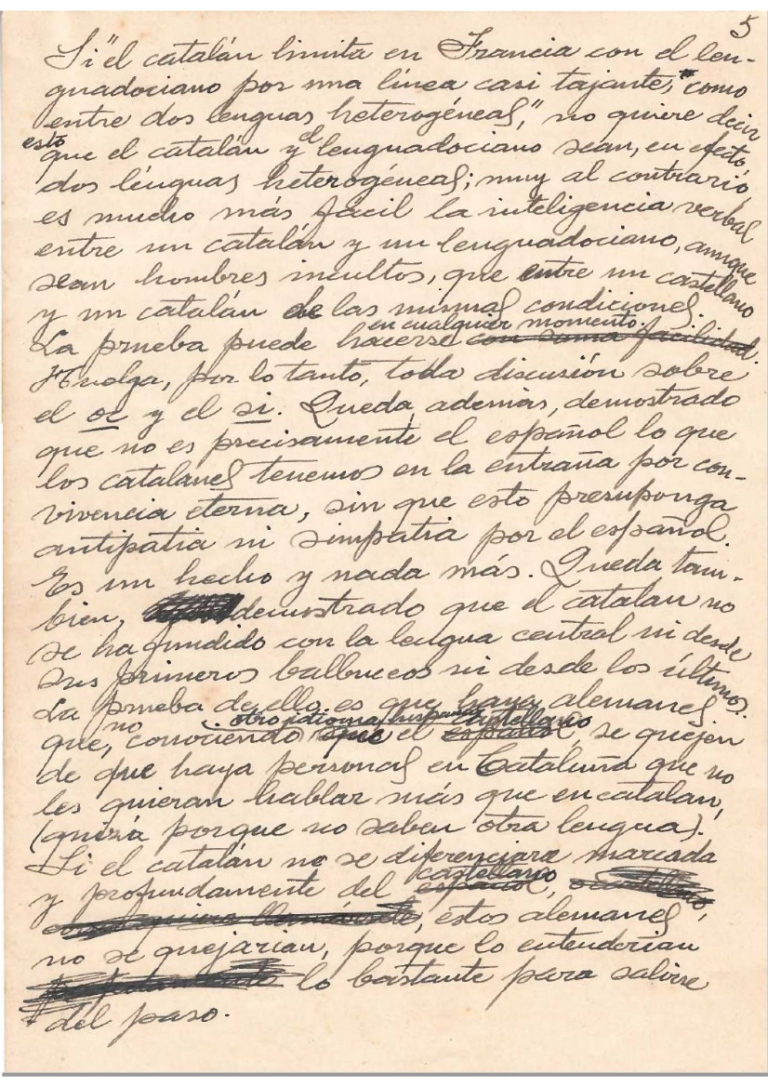 5
Si "el catalán limita en Francia con el len-
guadociano por una línea casi tajante, "como
entre dos lenguas heterogéneas," no quiere decir
esto
que el catalán y el lenguadociano sean, en efecto,
dos lenguas heterogéneas; muy al contrario,
es mucho más fácil la inteligencia verbal
entre un catalán y un lenguadociano, aunque
sean hombres incultos, que entre un castellano
y un catalán de las mismas condiciones.
en cualquier momento.
La prueba puede hacerse con suma facilidad.
Huelga, por lo tanto, toda discusión sobre
el oc y el si. Queda, además, demostrado
que no es precisamente el español lo que
los catalanes tenemos en la entraña por con-
vivencia eterna, sin que esto presuponga
antipatia ni simpatia por el español.
Es un hecho y nada más. Queda tam-
bien, demostrado que el catalan no
se ha fundido con la lengua central ni desde
sus primeros balbuceos ni desde los últimos.
La prueba de ello es que haya alemanes
no otro idioma hispano castellano
que, conociendo que el español, se quejen
de que haya personas en Cataluña que no
les quieran hablar más que en catalan,
(quizá porque no saben otra lengua).
Si el catalán no se diferenciara marcada
castellano
y profundamente del español,
estos alemanes
no se quejarian, porque lo entenderian
lo bastante para salirse
del paso.